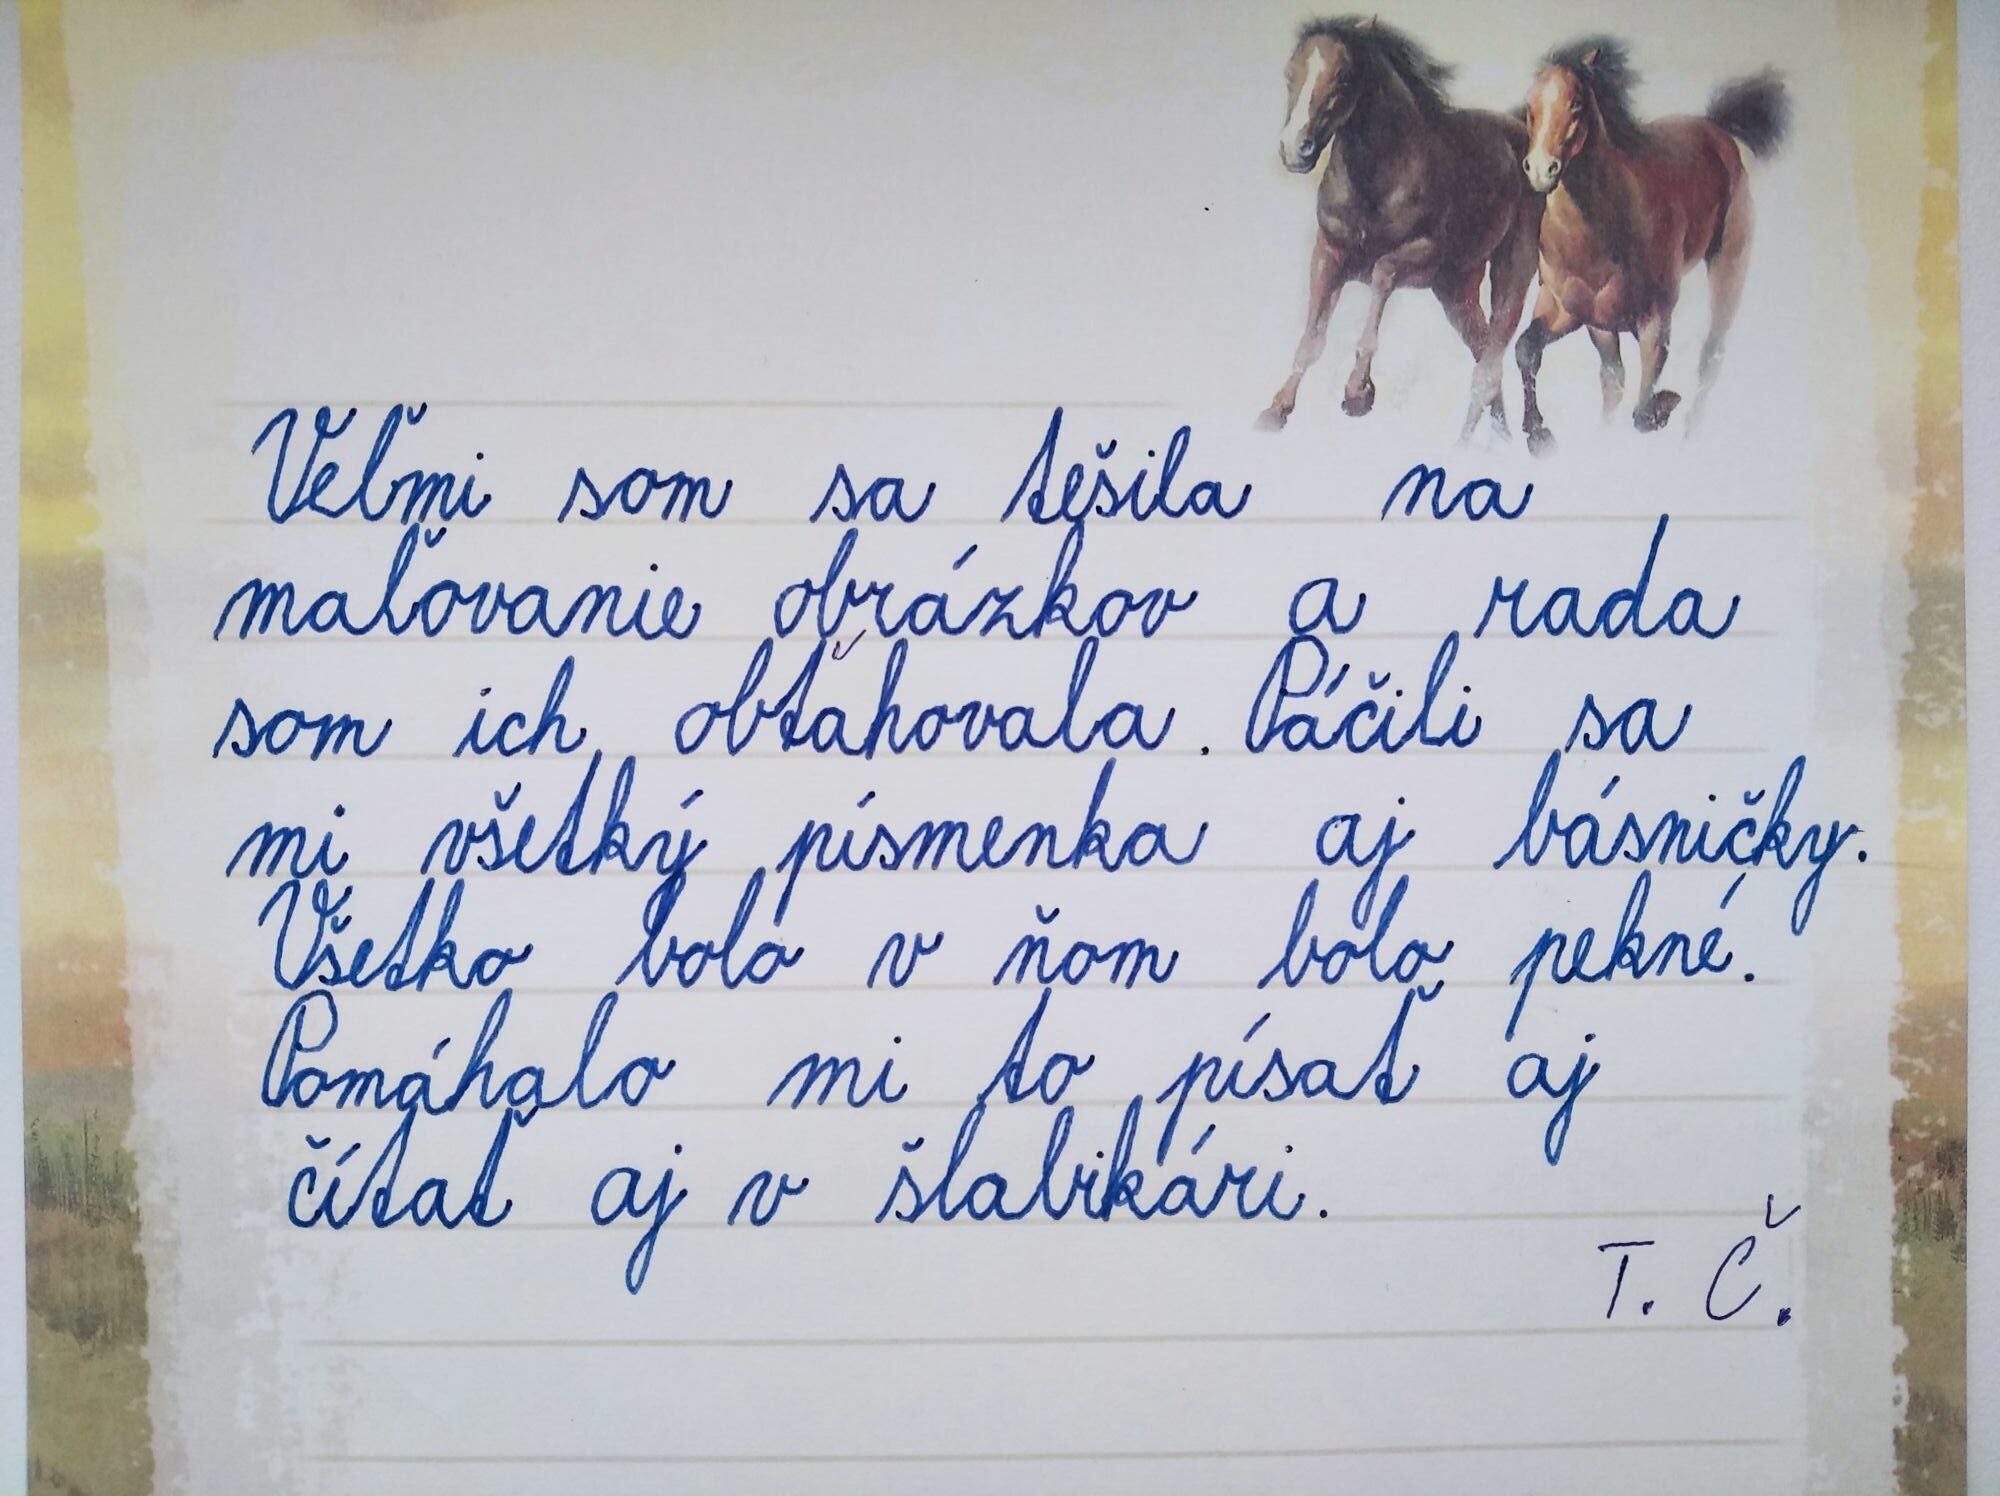 Veľmi som sa tešila na
maľovanie obrázkov a rada
som ich obťahovala. Páčili sa
mi všetký písmenka aj básničky.
Všetko bolo v ňom bolo pekné.
Pomáhalo mi to písať aj
čítať aj v šlabikári.
T. Č.